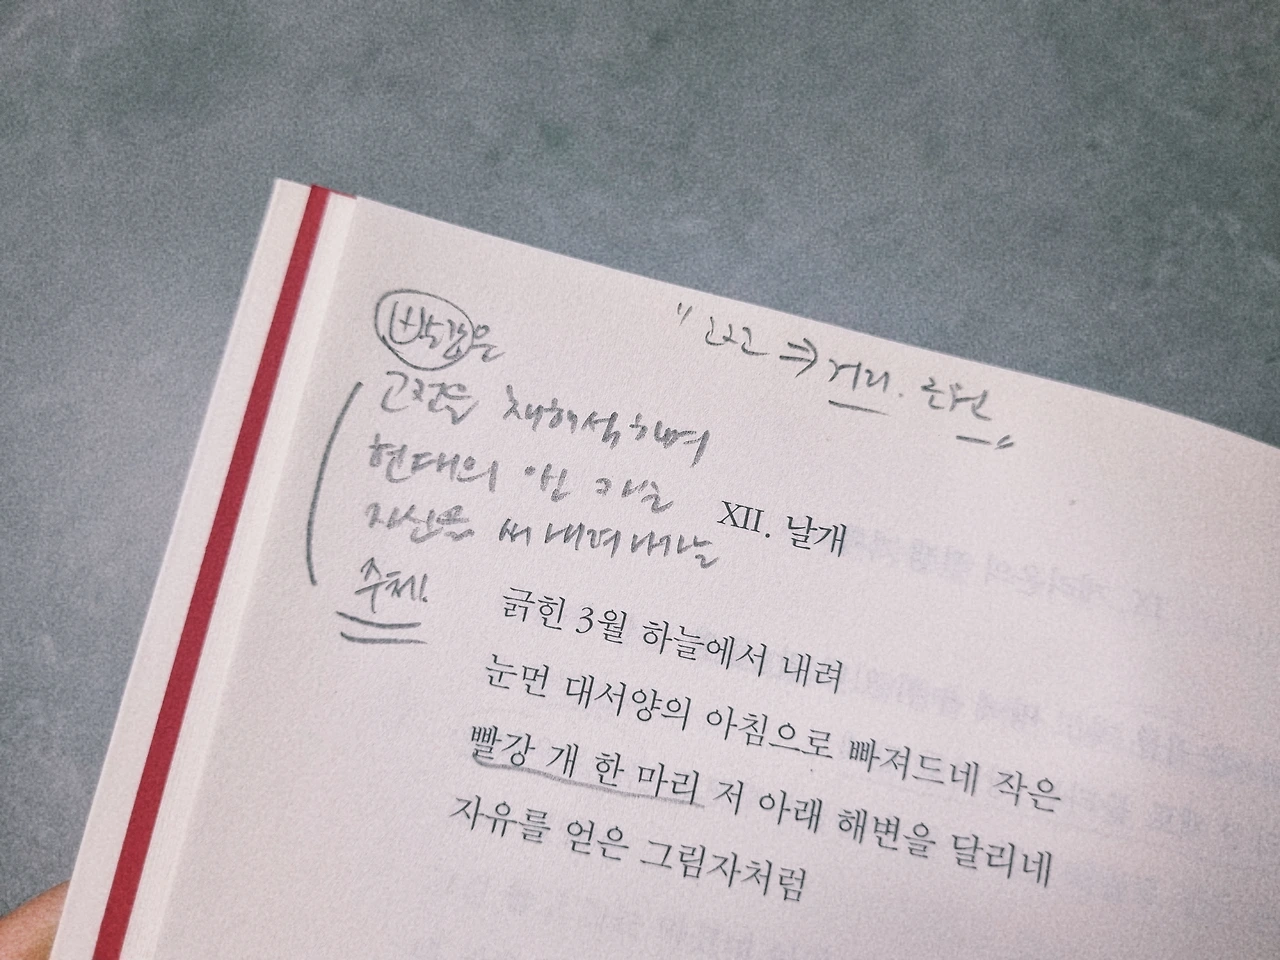 고전 ⇒ 거리.
고전을 재해석하며
현대의
자신을 써 내려
주체!
XII. 날개
긁힌 3월 하늘에서 내려
눈먼 대서양의 아침으로 빠져드네 작은
빨강 개 한 마리 저 아래 해변을 달리네
자유를 얻은 그림자처럼